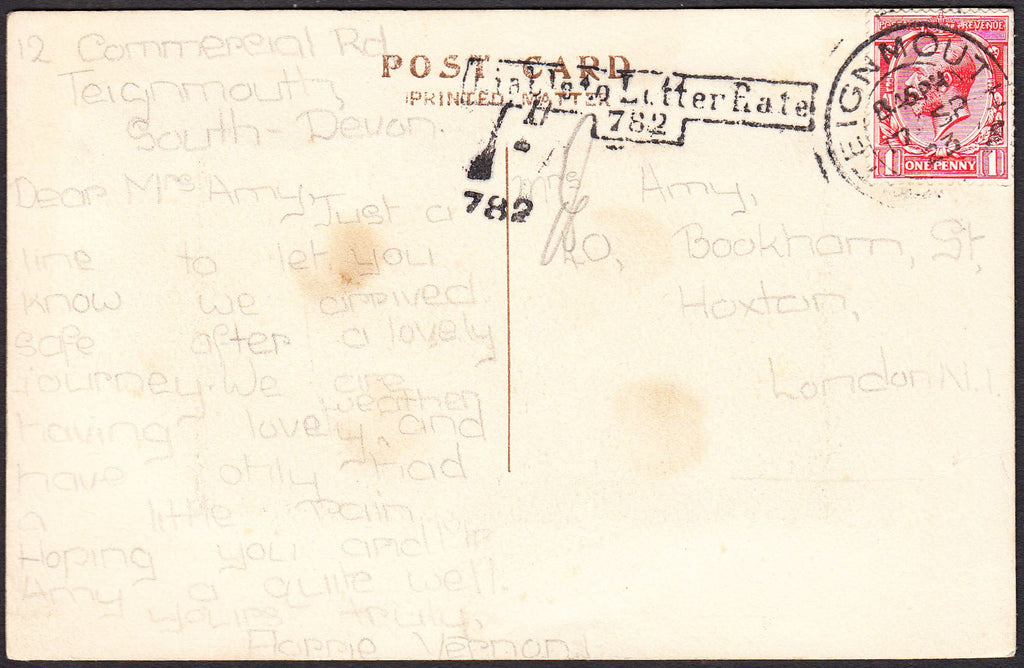 12 Commercial Rd
Teignmouth,
South-Devon.
Dear Mrs Amy,
Just a
line to let you
know we arrived
safe after a lovely
journey. We are
having lovely weather, and
have only had
a little rain
Hoping you and Mr
Amy a quite well.
yours truly,
Florrie Vernon
POST CARD
PRINTED MATTER
Liable to Letter Rate
782
782
Mrs Amy,
20, Bookham, St,
Hoxton,
London N.1
TEIGNMOUTH
23
POSTAGE REVENUE
1 ONE PENNY 1